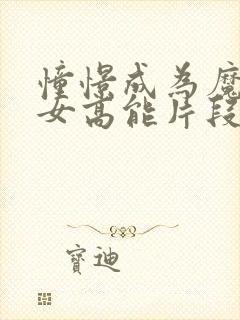 憧憬成為魔
女高能片段
寶迪